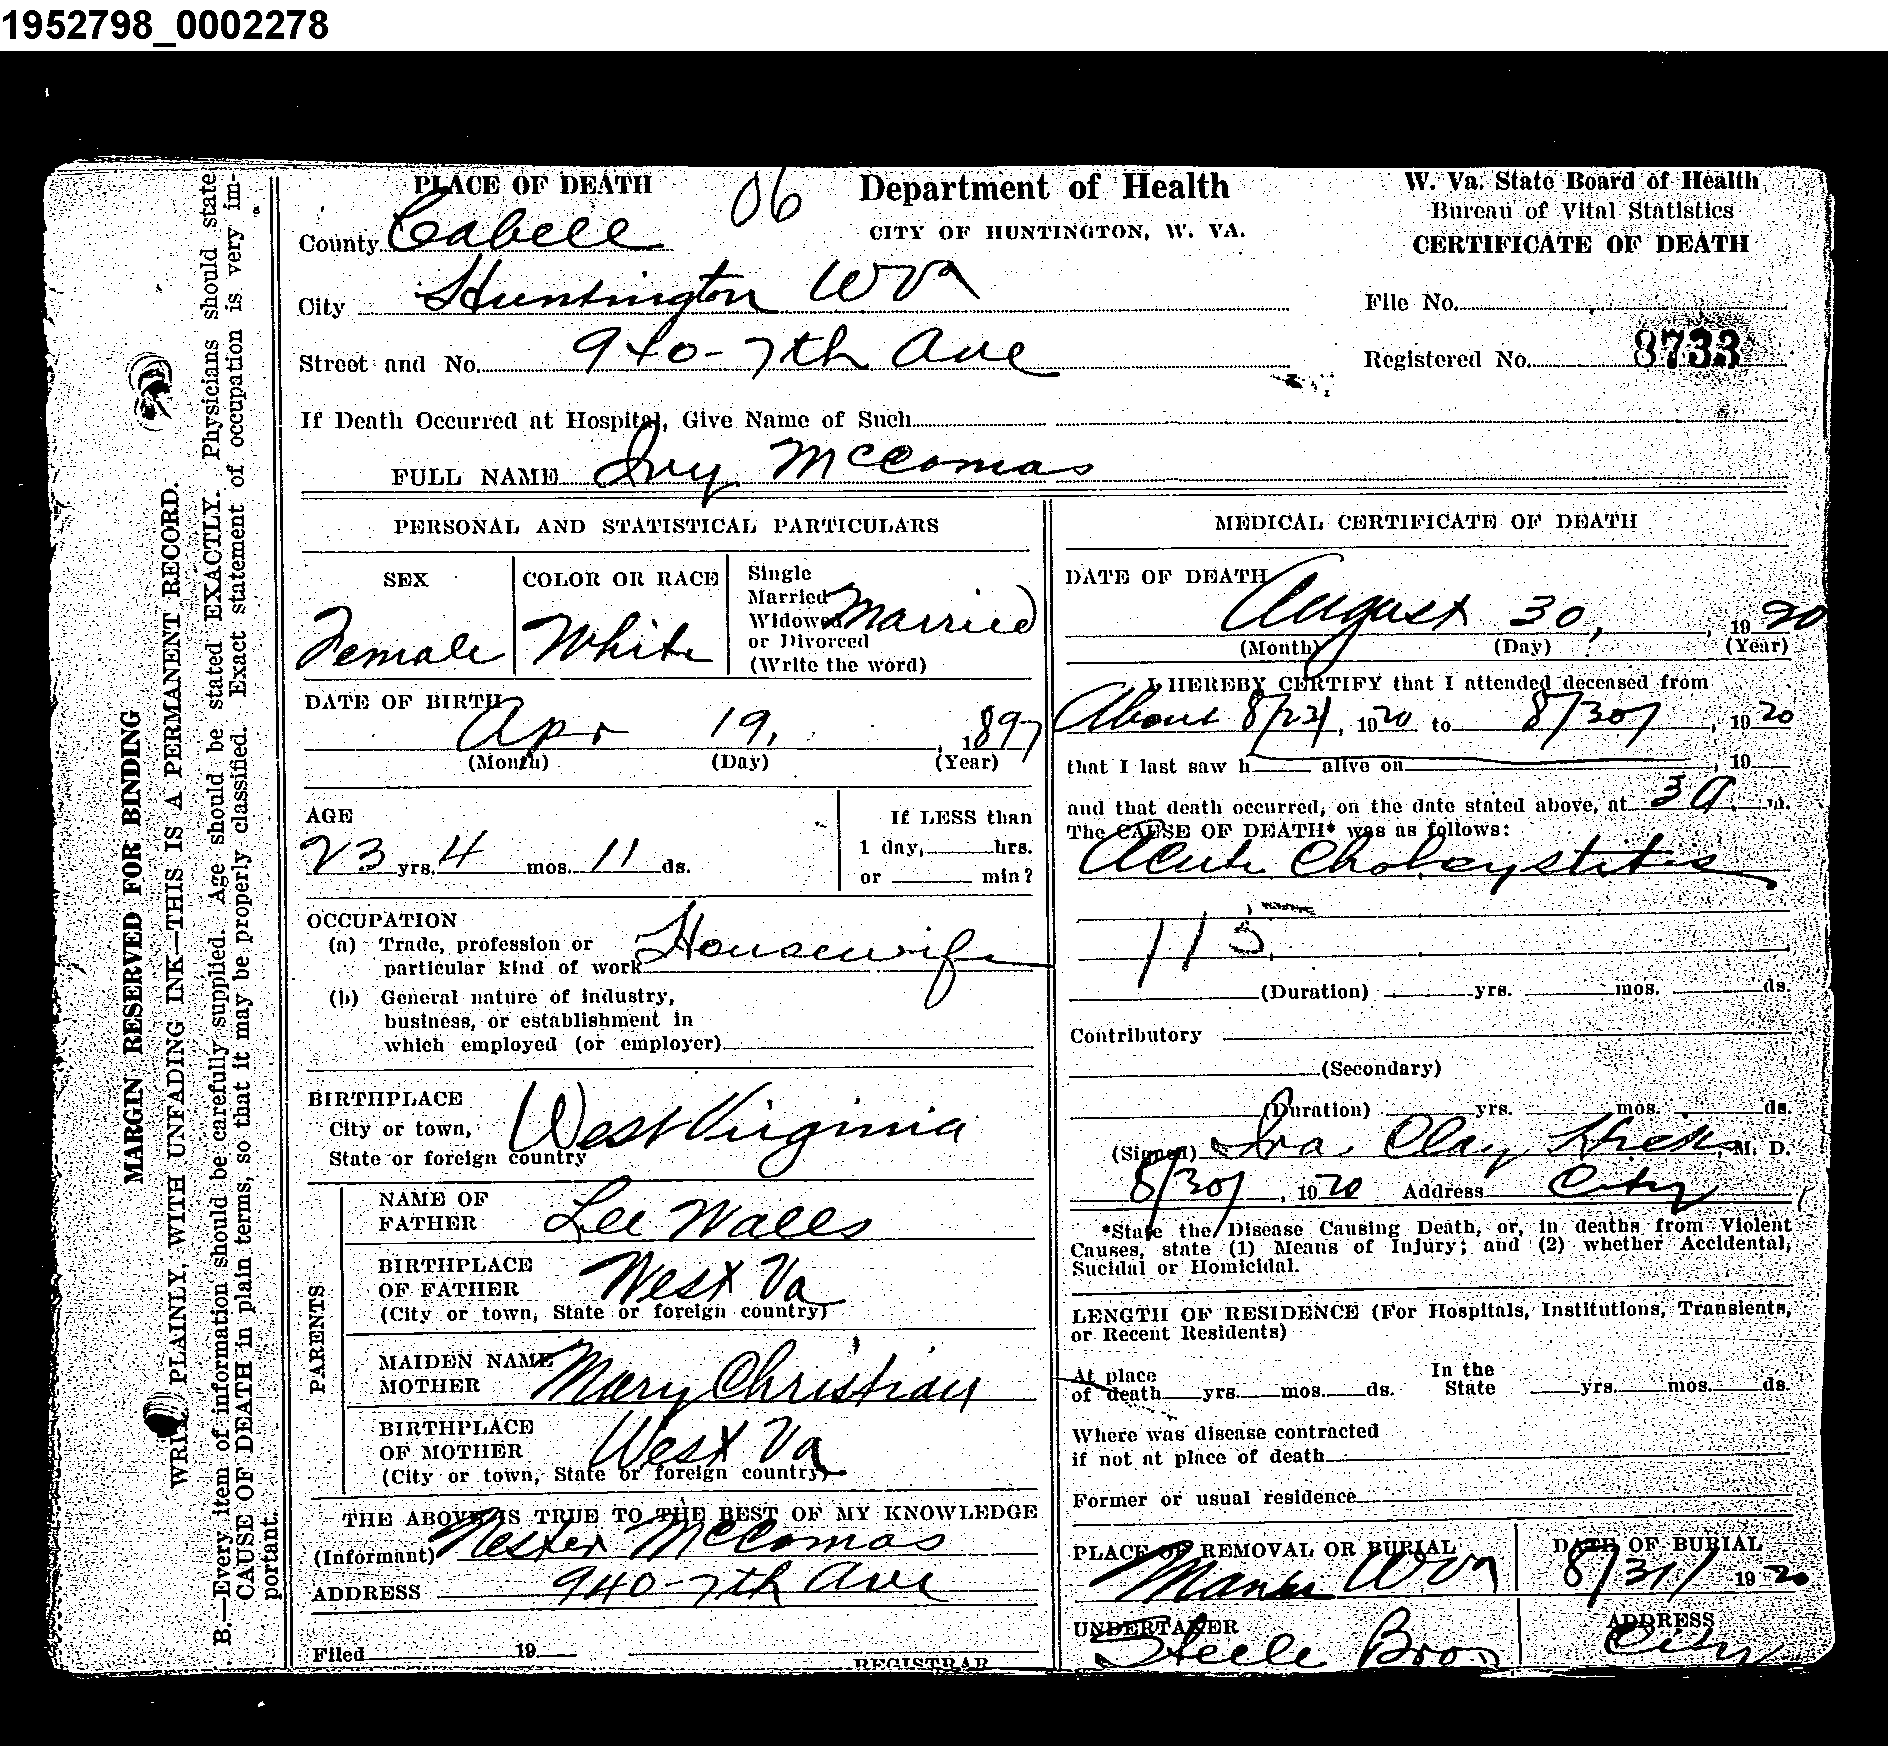 1952798_0002278
PLACE OF DEATH
06
County Cabell
City Huntington WVa
Street and No. 940-7th Ave
If Death Occurred at Hospital, Give Name of Such
FULL NAME Ivy McComas
Department of Health
CITY OF HUNTINGTON, W. VA.
W. Va. State Board of Health
Bureau of Vital Statistics
CERTIFICATE OF DEATH
File No.
Registered No. 8733
PERSONAL AND STATISTICAL PARTICULARS
SEX
Female
COLOR OR RACE
White
Single
Married
Widowed
or Divorced
(Write the word)
Married
DATE OF BIRTH
Apr 19, 1897
(Month) (Day) (Year)
AGE
23 yrs. 4 mos. 11 ds.
If LESS than
1 day, hrs.
or min?
OCCUPATION
(a) Trade, profession or
particular kind of work Housewife
(b) General nature of industry,
business, or establishment in
which employed (or employer)
BIRTHPLACE
City or town,
State or foreign country
West Virginia
PARENTS
NAME OF
FATHER
Lee Walls
BIRTHPLACE
OF FATHER
(City or town, State or foreign country)
West Va
MAIDEN NAME
MOTHER
Mary Christian
BIRTHPLACE
OF MOTHER
(City or town, State or foreign country)
West Va
THE ABOVE IS TRUE TO THE BEST OF MY KNOWLEDGE
(Informant) Nester McComas
ADDRESS 940-7th Ave
Filed 19
REGISTRAR
MEDICAL CERTIFICATE OF DEATH
DATE OF DEATH
August 30, 1920
(Month) (Day) (Year)
I HEREBY CERTIFY that I attended deceased from
About 8/23/, 1920 to 8/30/, 1920
that I last saw h alive on , 19
and that death occurred, on the date stated above, at 3 a. m.
The CAUSE OF DEATH* was as follows:
Acute Cholcystitis
115
(Duration) yrs. mos. ds.
Contributory
(Secondary)
(Duration) yrs. mos. ds.
(Signed) Ira Clay Hicks, M. D.
8/30/, 1920 Address City
*State the Disease Causing Death, or, in deaths from Violent
Causes, state (1) Means of Injury; and (2) whether Accidental,
Sucidal or Homicidal.
LENGTH OF RESIDENCE (For Hospitals, Institutions, Transients,
or Recent Residents)
At place
of death yrs. mos. ds.
In the
State yrs. mos. ds.
Where was disease contracted
if not at place of death
Former or usual residence
PLACE OF REMOVAL OR BURIAL
WVa
DATE OF BURIAL
8/31/ 1920
UNDERTAKER
Steele Bros
ADDRESS
City
MARGIN RESERVED FOR BINDING
WRITE PLAINLY, WITH UNFADING INK—THIS IS A PERMANENT RECORD.
B.—Every item of information should be carefully supplied. Age should be stated EXACTLY. Physicians should state
CAUSE OF DEATH in plain terms, so that it may be properly classified. Exact statement of occupation is very im-
portant.